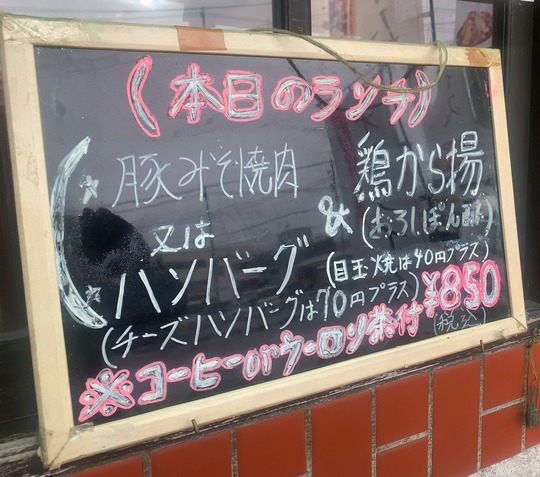 (本日のランチ)
☆豚みそ焼肉
又は
☆ハンバーグ
&
鶏から揚
(おろしぽん酢)
(目玉焼は40円プラス)
(チーズハンバーグは70円プラス)
¥850
(税込)
※コーヒーorウーロン茶付